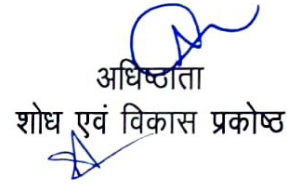 अधिष्ठाता
शोध एवं विकास प्रकोष्ठ